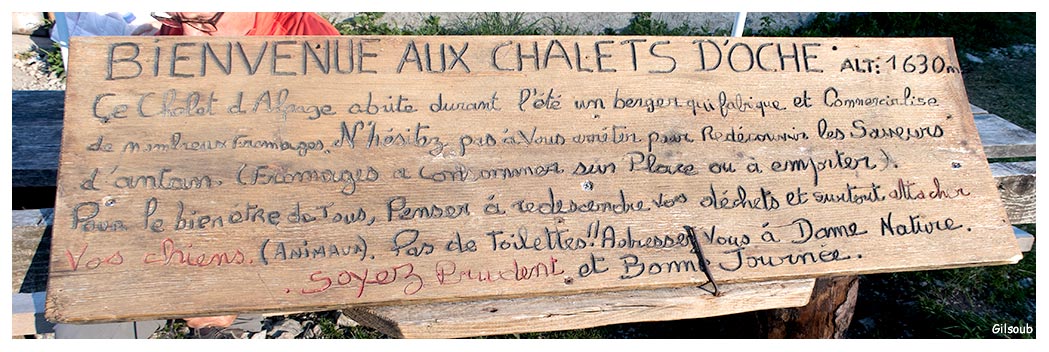 BIENVENUE AUX CHALETS D'OCHE. ALT: 1630m
Ce Chalet d'Alpage abite durant l'été un berger qui fabrique et Commercialise
de nombreux Fromages. N'hésitez pas à Vous arrêter pour Redécouvrir les Saveurs
d'antan. (Fromages a Consommer sur Place ou à emporter).
Pour le bien être de Tous, Penser à redescendre vos déchets et surtout attacher
Vos chiens. (ANIMAUX). Pas de Toilettes!! Adresser Vous à Dame Nature.
. Soyez Prudent et Bonne Journée.
Gilsoub